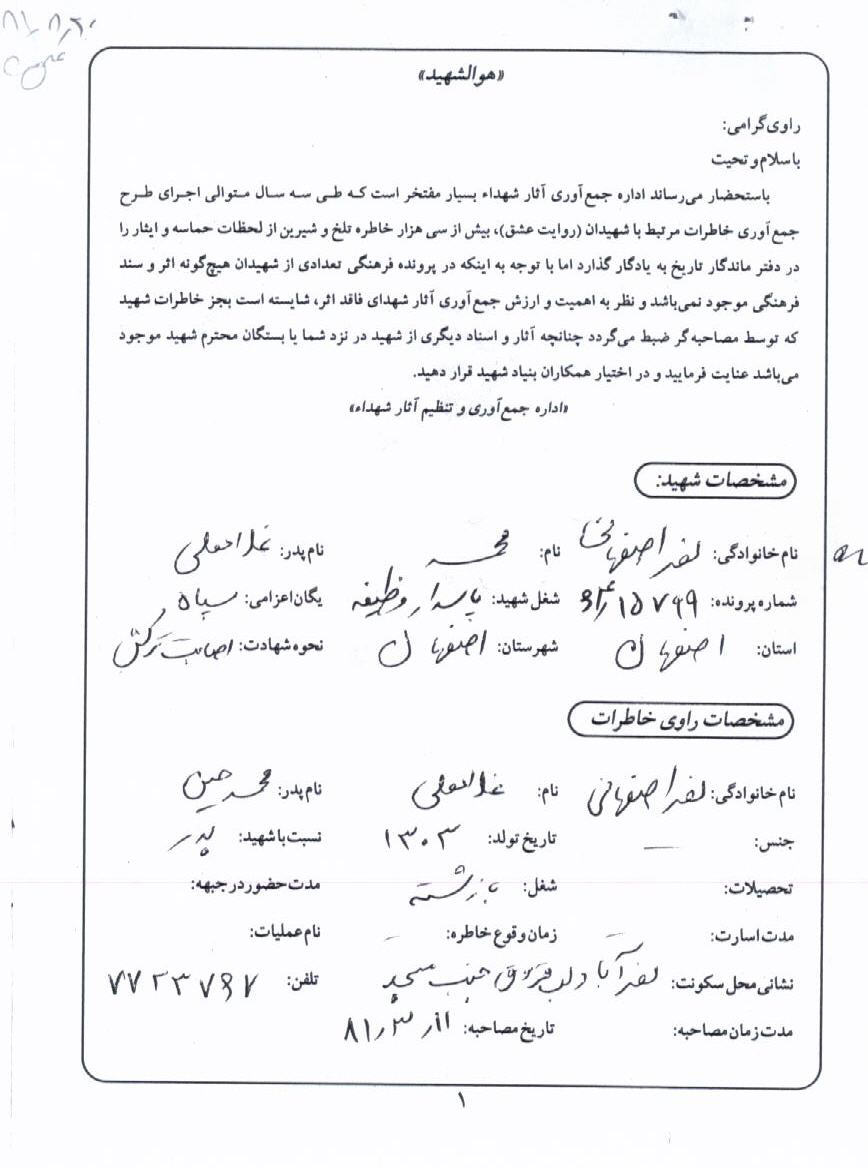 ۸۱٫۸٫۲۰
«هوالشهید»
راوی‌گرامی:
باسلام‌وتحیت
باستحضار می‌رساند اداره جمع‌آوری آثار شهداء بسیار مفتخر است که طی سه سال متوالی اجرای طرح
جمع‌آوری خاطرات مرتبط با شهیدان (روایت عشق)، بیش از سی هزار خاطره تلخ و شیرین از لحظات حماسه و ایثار را
در دفتر ماندگار تاریخ به یادگار گذارد اما با توجه به اینکه در پرونده فرهنگی تعدادی از شهیدان هیچ‌گونه اثر و سند
فرهنگی موجود نمی‌باشد و نظر به اهمیت و ارزش جمع‌آوری آثار شهدای فاقد اثر، شایسته است بجز خاطرات شهید
که توسط مصاحبه‌گر ضبط می‌گردد چنانچه آثار و اسناد دیگری از شهید در نزد شما یا بستگان محترم شهید موجود
می‌باشد عنایت فرمایید و در اختیار همکاران بنیاد شهید قرار دهید.
«اداره جمع‌آوری و تنظیم آثار شهداء»
مشخصات شهید:
نام‌خانوادگی: نصر اصفهانی نام: محمد نام‌پدر: غلامعلی
شماره‌پرونده: شغل‌شهید: پاسدار وظیفه یگان‌اعزامی: سپاه
استان: اصفهان شهرستان: اصفهان نحوه‌شهادت: اصابت ترکش
مشخصات راوی خاطرات
نام‌خانوادگی: نصر اصفهانی نام: غلامعلی نام‌پدر: محمد حسین
جنس: — تاریخ‌تولد: ۱۳۰۳ نسبت‌باشهید: پدر
تحصیلات: شغل: بازنشسته مدت‌حضوردرجبهه:
مدت‌اسارت: – زمان‌وقوع‌خاطره: – نام‌عملیات:
نشانی‌محل‌سکونت: نصرآباد جنب مسجد تلفن: ۷۷۲۳۷۶۷
مدت‌زمان‌مصاحبه: تاریخ‌مصاحبه: ۸۱٫۳٫۱۱
۱